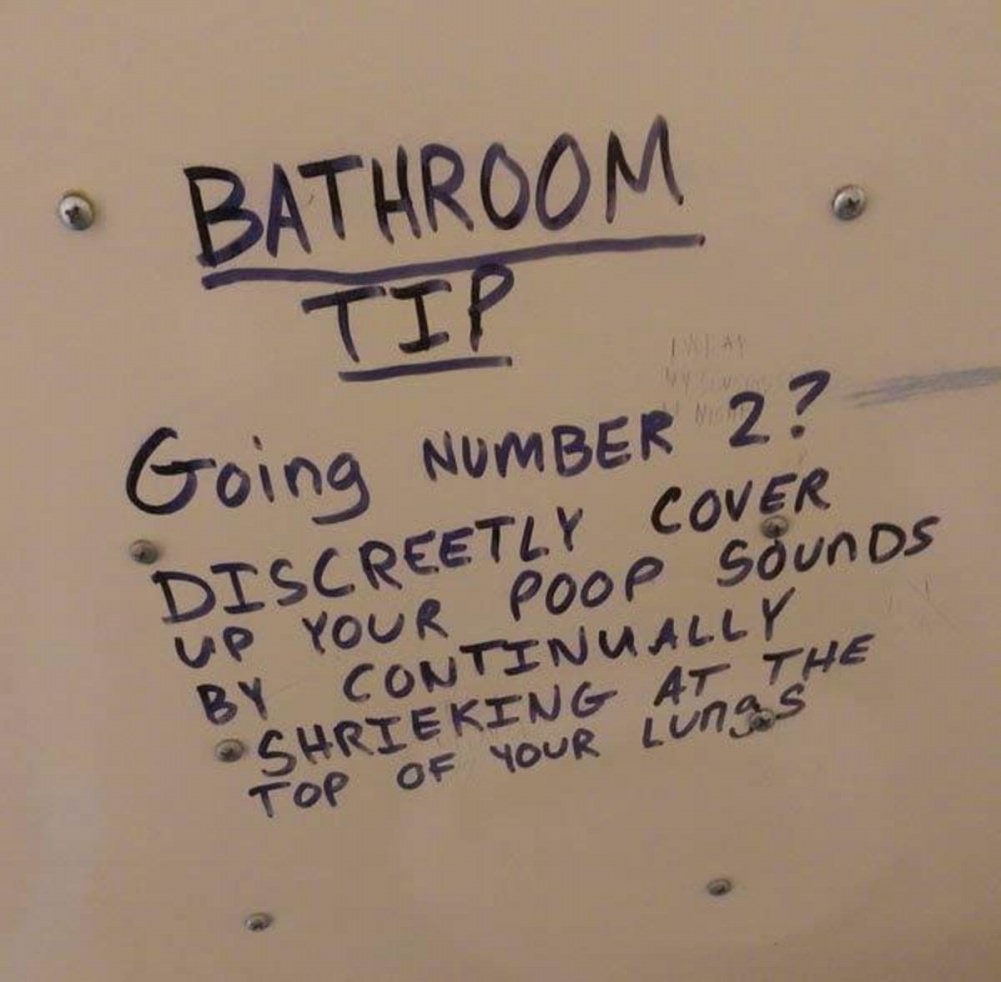 BATHROOM
TIP
Going NUMBER 2?
DISCREETLY COVER
UP YOUR POOP SOUnDS
BY CONTINUALLY
SHRIEKING AT THE
TOP OF YOUR LUngS